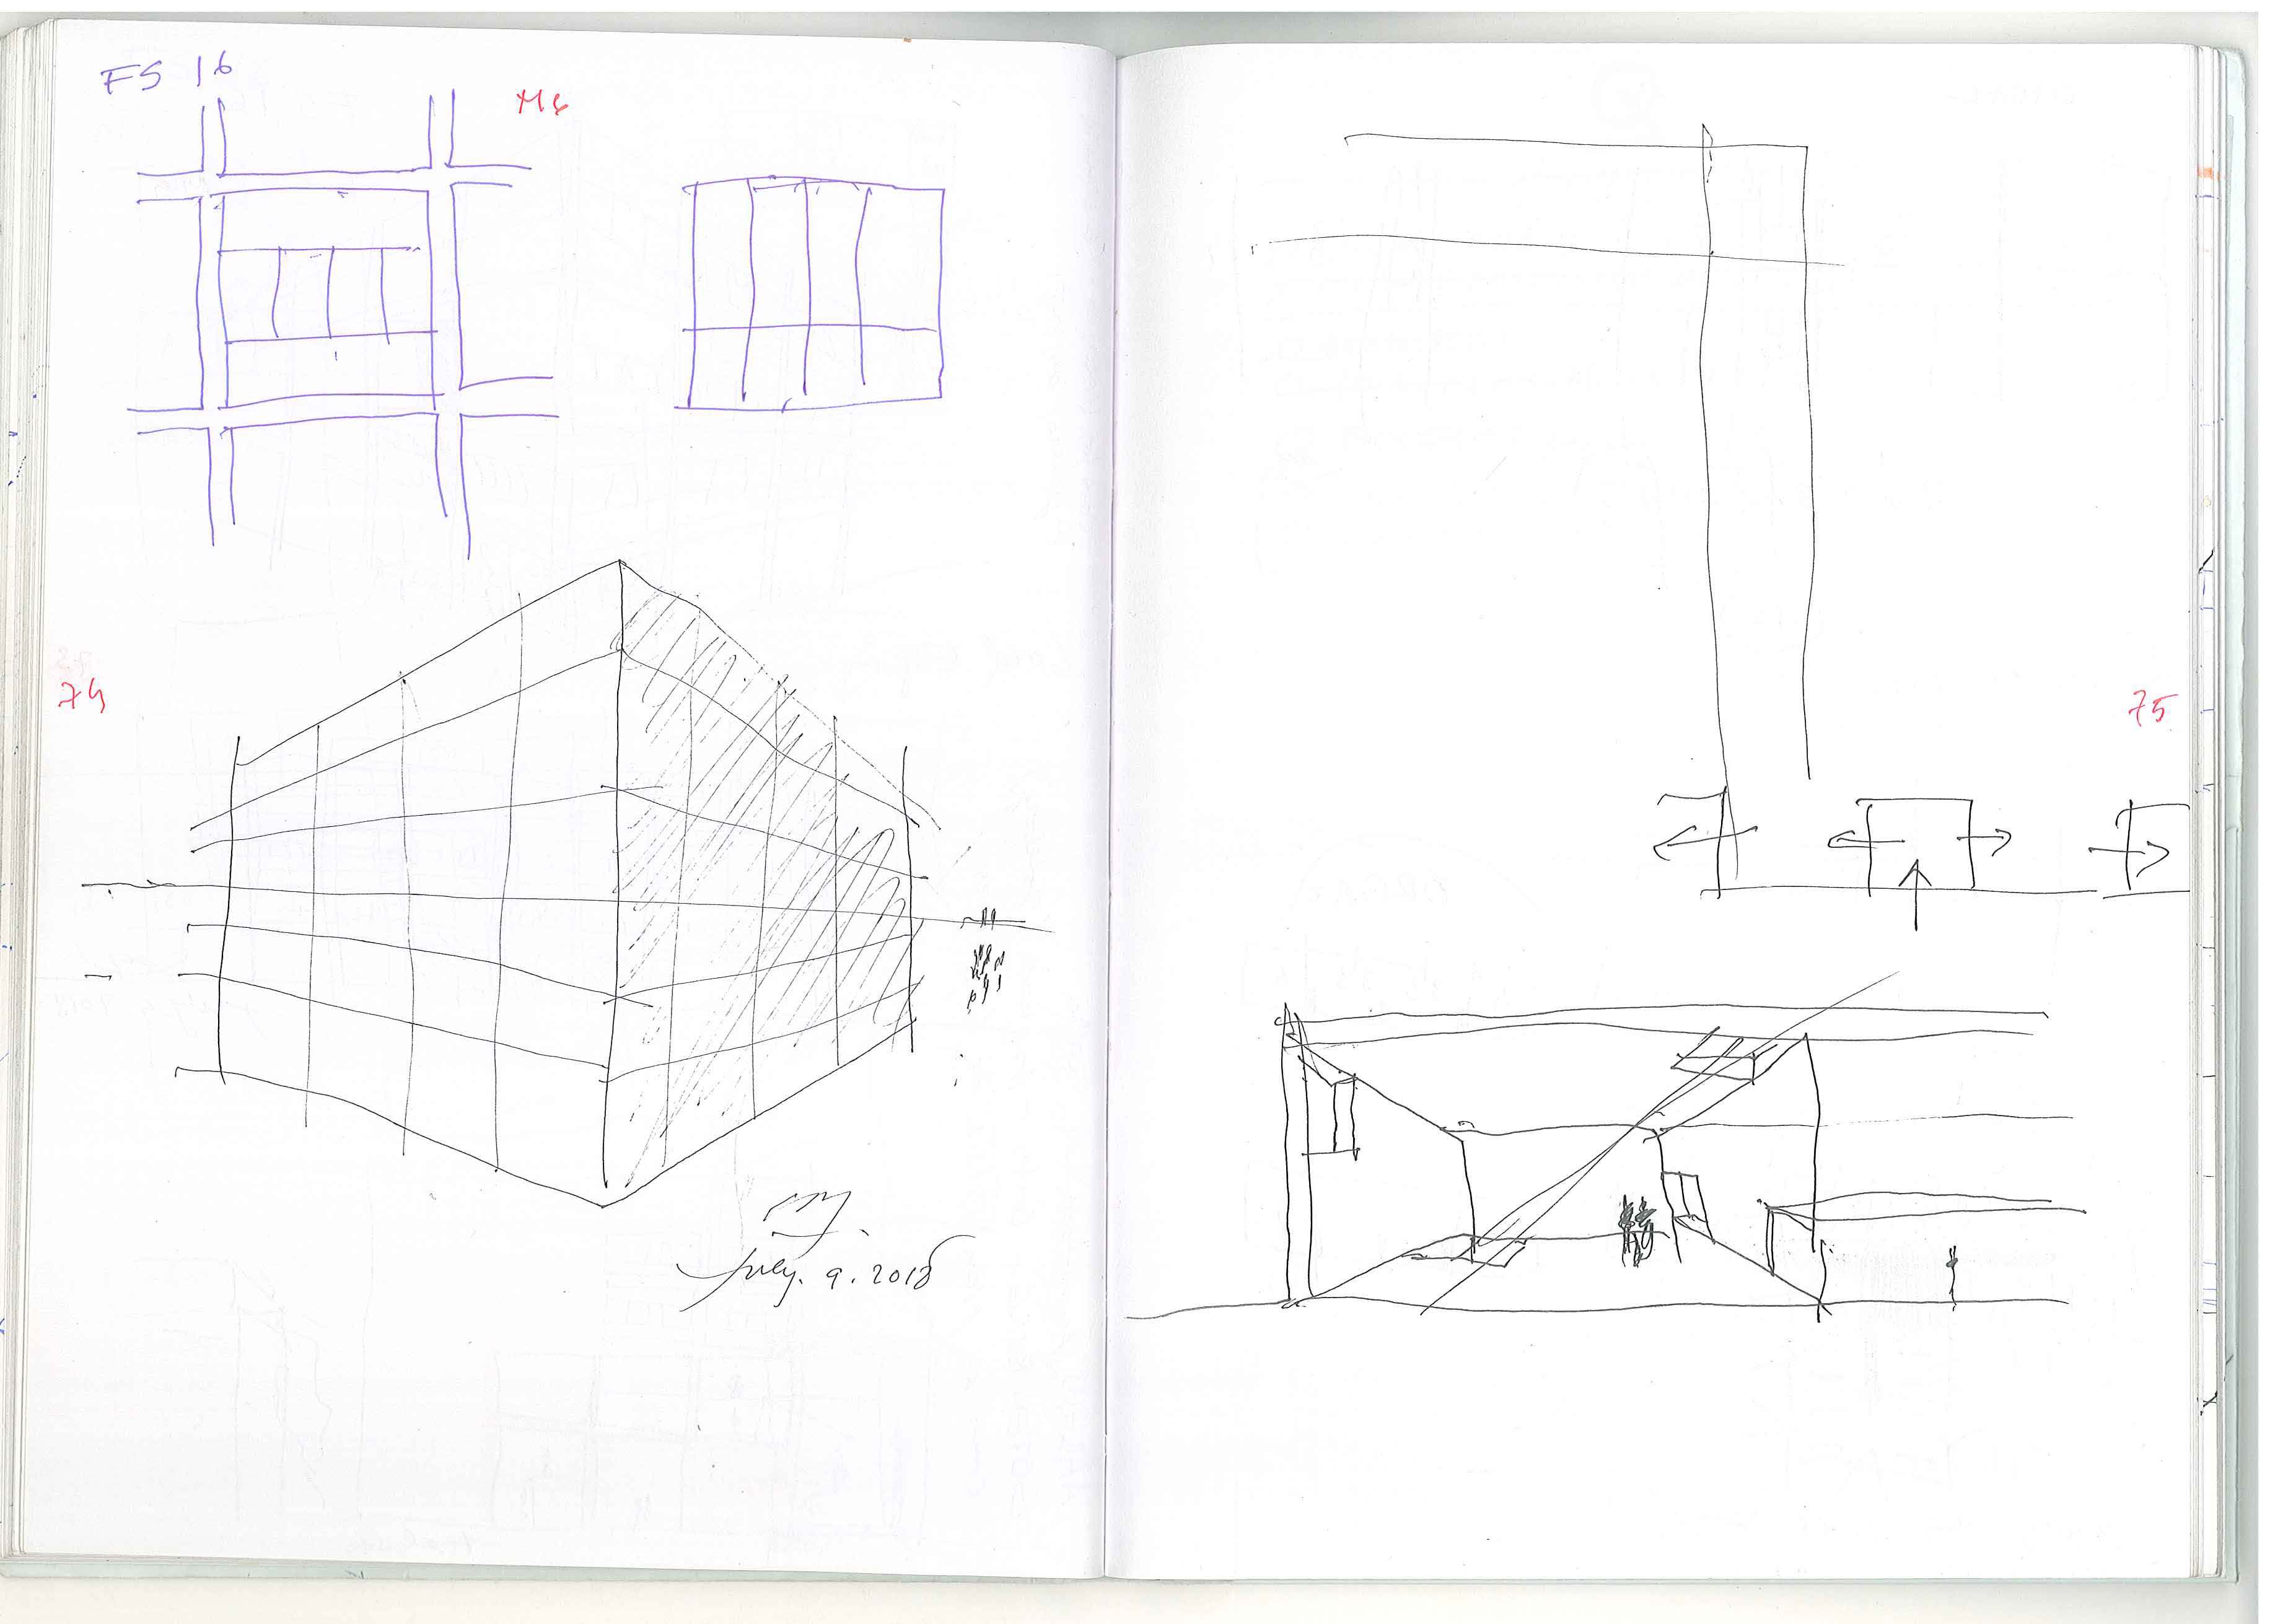 FS 16
M6
74
July. 9. 2018
75